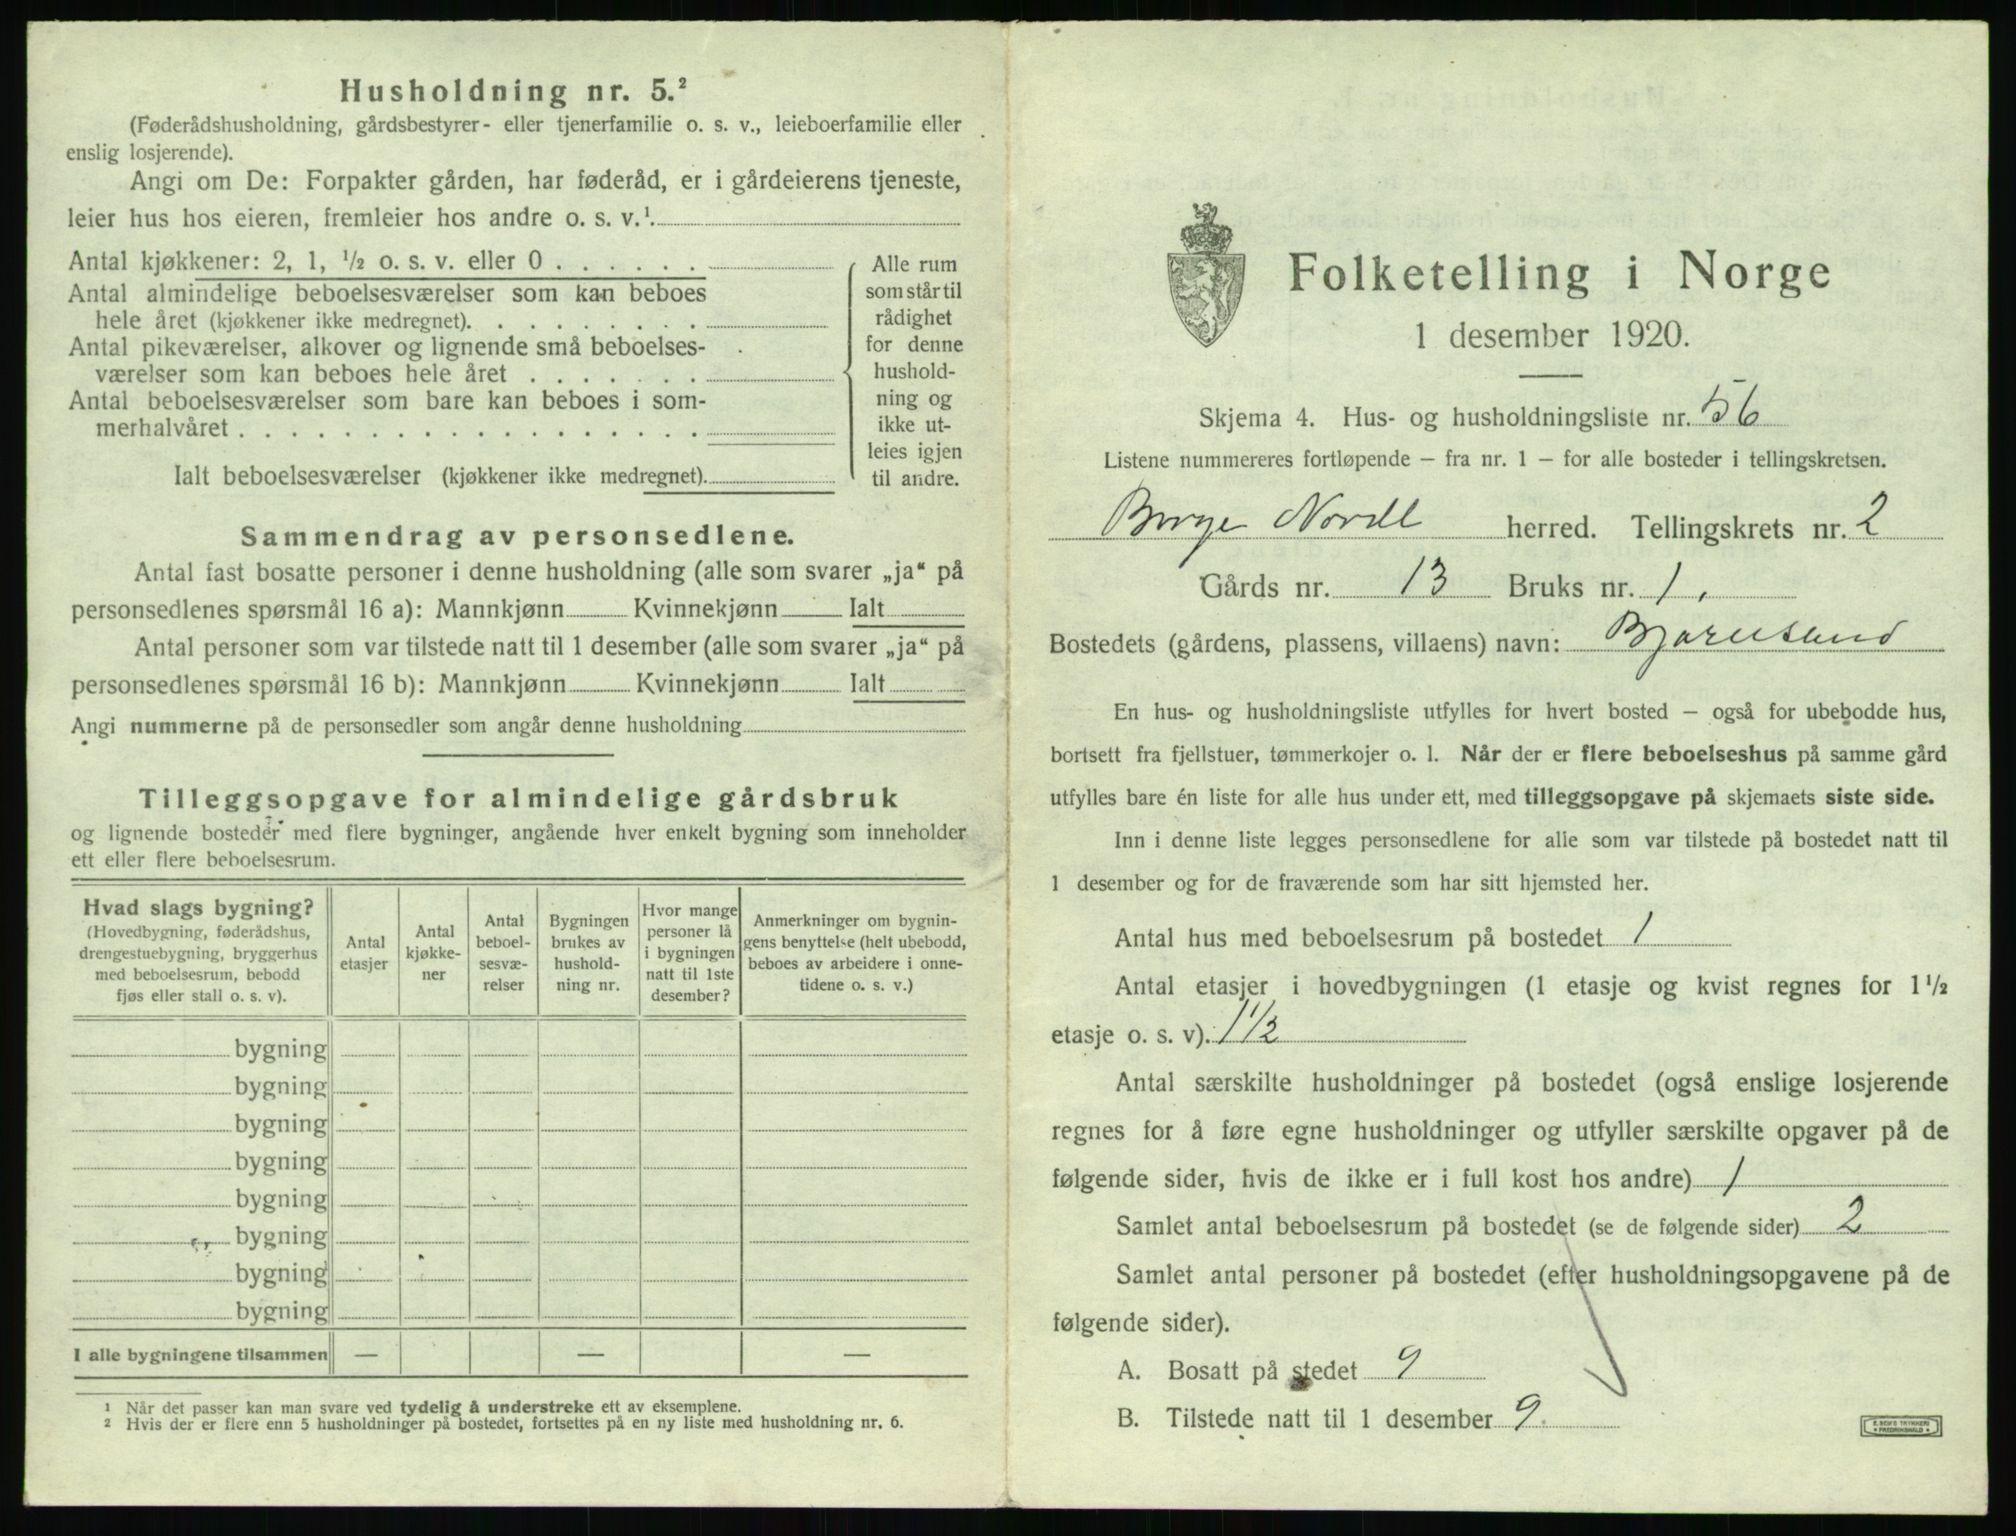 Husholdning nr. 5.²
(Føderådshusholdning, gårdsbestyrer- eller tjenerfamilie o. s. v., leieboerfamilie eller
enslig losjerende).
Angi om De: Forpakter gården, har føderåd, er i gårdeierens tjeneste,
leier hus hos eieren, fremleier hos andre o. s. v.¹.
Antal kjøkkener: 2, 1, ½ o. s. v. eller 0
Antal almindelige beboelsesværelser som kan beboes
hele året (kjøkkener ikke medregnet).
Antal pikeværelser, alkover og lignende små beboelses-
værelser som kan beboes hele året
Antal beboelsesværelser som bare kan beboes i som-
merhalvåret
Ialt beboelsesværelser (kjøkkener ikke medregnet).
Alle rum
som står til
rådighet
for denne
hushold-
ning og
ikke ut-
leies igjen
til andre.
Sammendrag av personsedlene.
Antal fast bosatte personer i denne husholdning (alle som svarer „ja“ på
personsedlenes spørsmål 16 a): Mannkjønn Kvinnekjønn Ialt
Antal personer som var tilstede natt til 1 desember (alle som svarer „ja“ på
personsedlenes spørsmål 16 b): Mannkjønn Kvinnekjønn Ialt
Angi nummerne på de personsedler som angår denne husholdning
Tilleggsopgave for almindelige gårdsbruk
og lignende bosteder med flere bygninger, angående hver enkelt bygning som inneholder
ett eller flere beboelsesrum.
Hvad slags bygning?
(Hovedbygning, føderådshus,
drengestuebygning, bryggerhus
med beboelsesrum, bebodd
fjøs eller stall o. s. v).
Antal
etasjer
Antal
kjøkke-
ner
Antal
beboel-
sesvæ-
relser
Bygningen
brukes av
hushold-
ning nr.
Hvor mange
personer lå
i bygningen
natt til 1ste
desember?
Anmerkninger om bygnin-
gens benyttelse (helt ubebodd,
beboes av arbeidere i onne-
tidene o. s. v.)
bygning
bygning
bygning
bygning
bygning
bygning
bygning
bygning
I alle bygningene tilsammen — — —
¹ Når det passer kan man svare ved tydelig å understreke ett av eksemplene.
² Hvis der er flere enn 5 husholdninger på bostedet, fortsettes på en ny liste med husholdning nr. 6.
Folketelling i Norge
1 desember 1920.
Skjema 4. Hus- og husholdningsliste nr. 56
Listene nummereres fortløpende – fra nr. 1 – for alle bosteder i tellingskretsen.
Borge Nordl herred. Tellingskrets nr. 2
Gårds nr. 13 Bruks nr. 1.
Bostedets (gårdens, plassens, villaens) navn: Bjørnsund
En hus- og husholdningsliste utfylles for hvert bosted – også for ubebodde hus,
bortsett fra fjellstuer, tømmerkojer o. l. Når der er flere beboelseshus på samme gård
utfylles bare én liste for alle hus under ett, med tilleggsopgave på skjemaets siste side.
Inn i denne liste legges personsedlene for alle som var tilstede på bostedet natt til
1 desember og for de fraværende som har sitt hjemsted her.
Antal hus med beboelsesrum på bostedet 1
Antal etasjer i hovedbygningen (1 etasje og kvist regnes for 1½
etasje o. s. v). 1½
Antal særskilte husholdninger på bostedet (også enslige losjerende
regnes for å føre egne husholdninger og utfyller særskilte opgaver på de
følgende sider, hvis de ikke er i full kost hos andre) 1
Samlet antal beboelsesrum på bostedet (se de følgende sider) 2
Samlet antal personer på bostedet (efter husholdningsopgavene på de
følgende sider).
A. Bosatt på stedet 9
B. Tilstede natt til 1 desember 9.